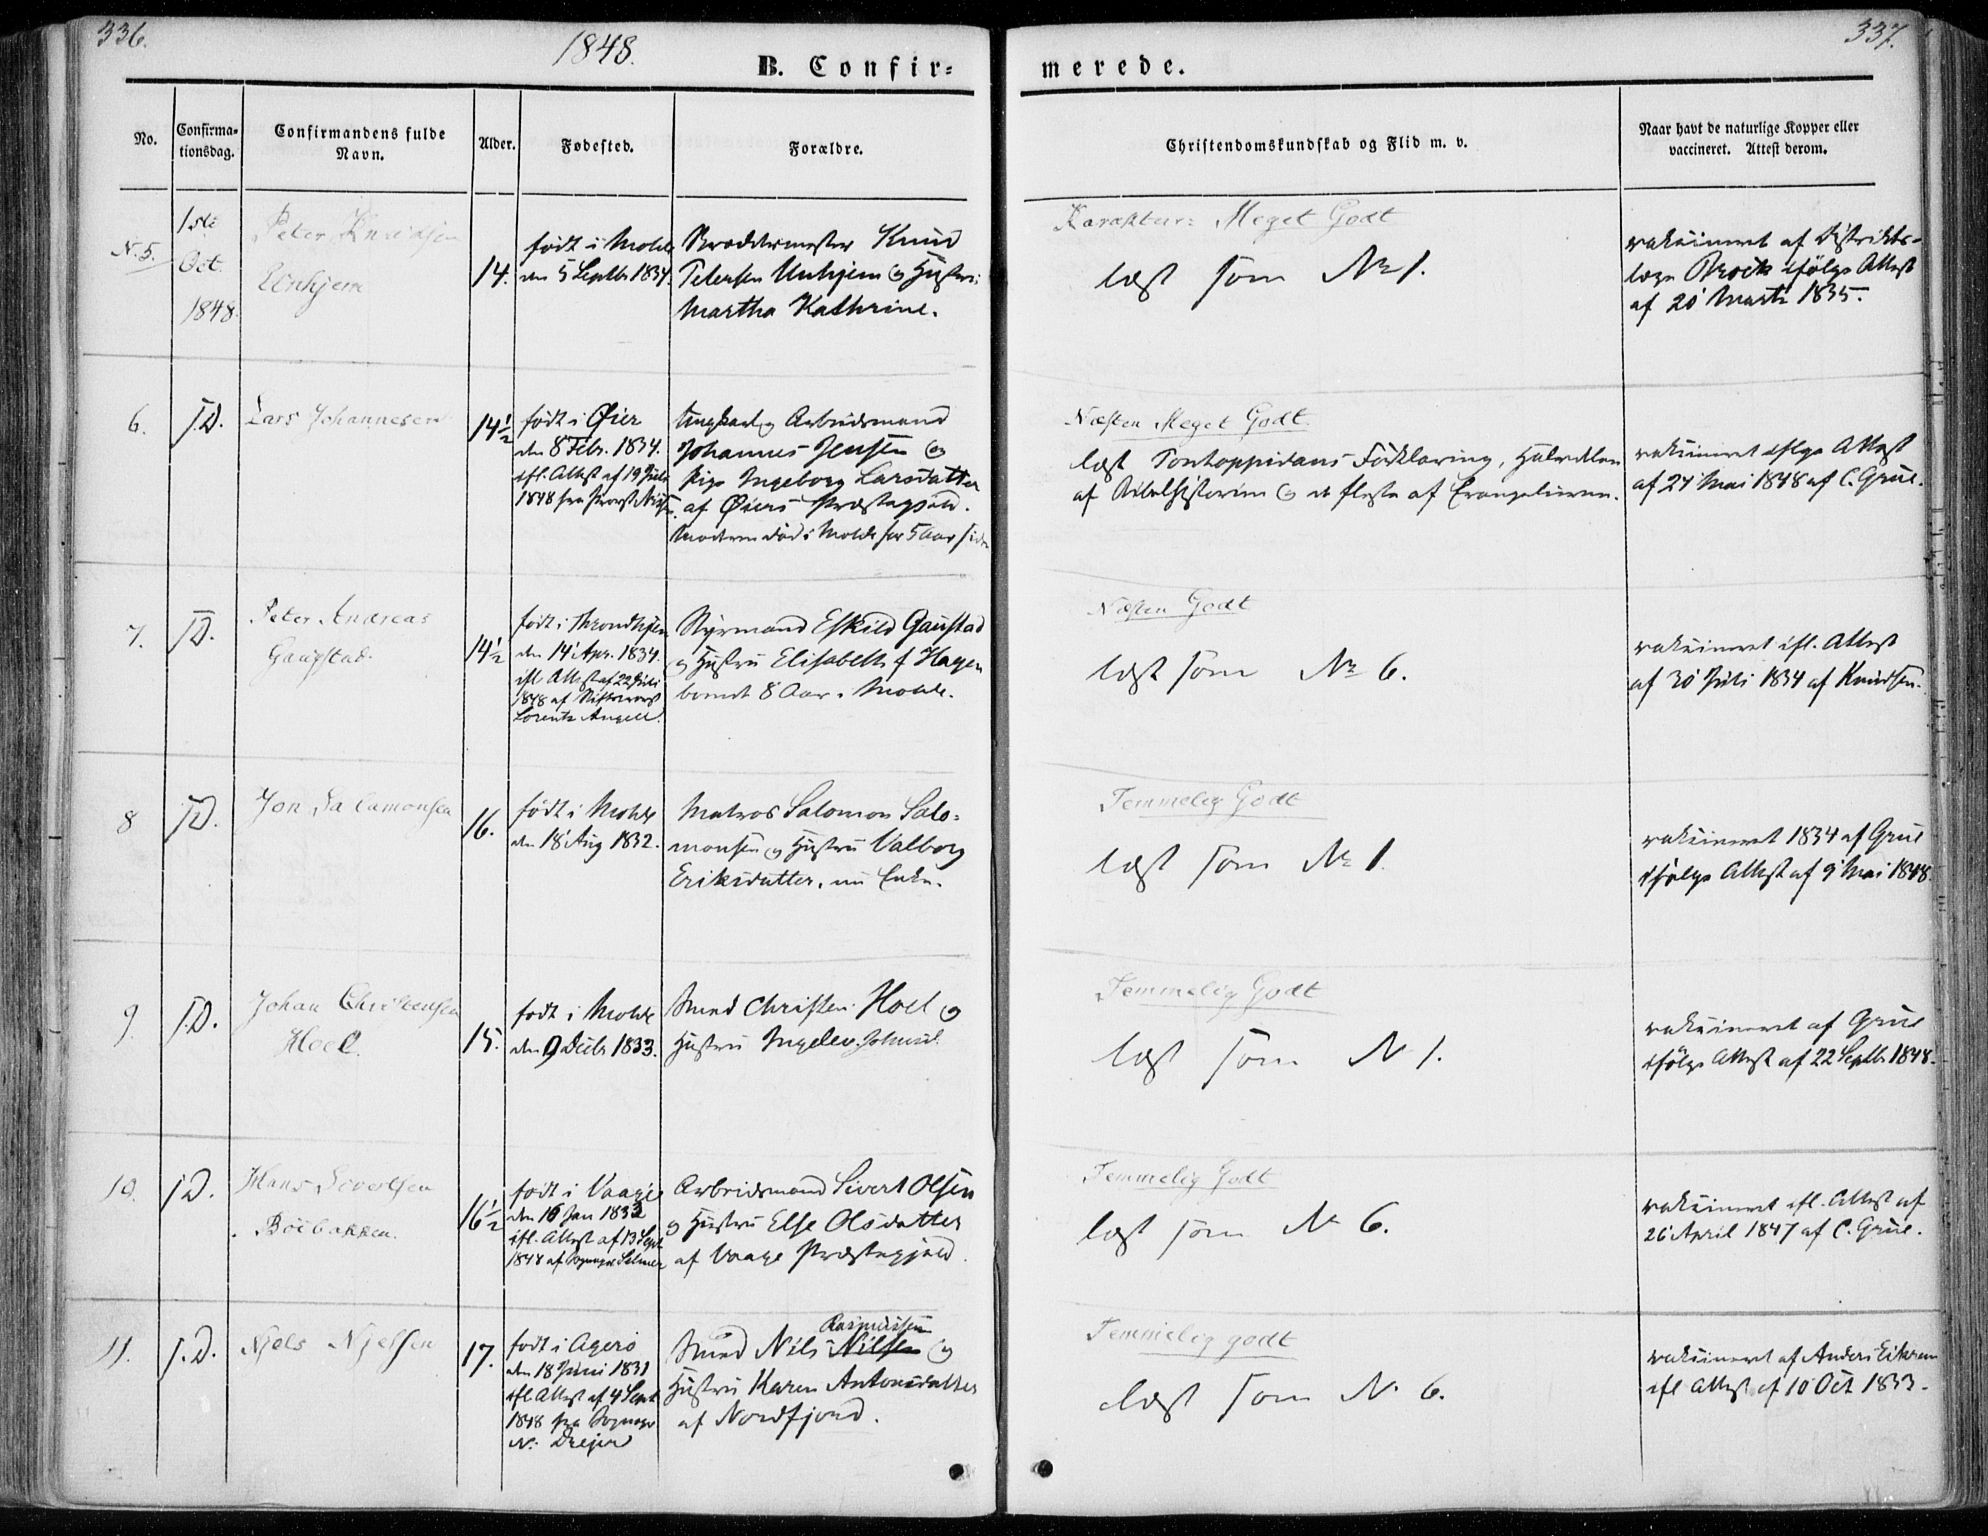 336.
1848.
B. Confir=
No.
Confirma=
tionsdag.
Confirmandens fulde
Navn.
Alder.
Fødested.
Forældre.
N. 5.
1ste
Oct.
1848.
Peter Knudsen
Unhjem
14.
født i Molde
den 5 Septbr 1834.
Skræddermester Knud
Petersen Unhjem og Hustru
Martha Kathrine.
6.
I.D.
Lars Johannesen
14½
født i Øier
den 8 Febr. 1834.
ifl. Attest af 19 Juli
1848 fra Provst
Ungkarl og Arbeidsmand
Johannes Jensen og
Pige Ingeborg Larsdatter
af Øiers Præstegjeld.
Moderen død i Molde for 5 Aar siden
7.
I.D.
Peter Andreas
Gaustad.
14½
født i Throndhjem
den 14 Apr. 1834.
ifl. Attest af 22 Juli
1848 af Stiftsprovst
Lorentz Angell.
Styrmand Eskild Gaustad
og Hustru Elisabeth f. Hagen
boendt 8 Aar i Molde.
8
I.D.
Jon Salamonsen
16.
født i Molde
den 18 Aug 1832.
Matros Salomon Salo=
monsen og Hustru Valborg
Eriksdatter, nu Enke.
9.
I.D.
Johan Christensen
Hoel.
15.
født i Molde
den 9 Decbr 1833.
Christen Hoel og
Hustru Ingelev
10.
I.D.
Hans Sivertsen
Böebakken.
16½
født i Vaage
den 16 Jan 1832
ifl. Attest af 13 Sept
1848 af Sognepr. Selmer
Arbeidsmand Sivert Olsen
og Hustru Else Olsdatter
af Vaage Præstegjeld.
11.
I.D.
Njels Njelsen
17.
født i Agerø
den 18 Juni 1831
ifl Attest af 4 Sept
1848 fra Sognepr
N. Dreyer
Rasmussen
Nils Nilsen og
Hustru Karen Antonsdatter
af Nordfjord.
337.
merede.
Christendomskundskab og Flid m. v.
Naar havt de naturlige Kopper eller
vaccineret. Attest derom.
Karakteer: Meget Godt
læst som No 1.
vakcineret af Distrikts-
læge Brock ifölge Attest
af 20 Marts 1835.
Næsten Meget Godt.
læst Pontoppidans Forklaring, Halvdelen
af Bibelhistorien og de fleste af Evangelierne.
vakcineret ifölge Attest
af 24 Mai 1848 af C. Grüe.
Næsten Godt
læst som No 6.
vakcineret ifl. Attest
af 30 Juli 1834 af Knudsen.
Temmelig Godt
læst som No 1.
vakcineret 1834 af Grüe
ifölge Attest af 9 Mai 1848.
Temmelig Godt
læst som N 1.
vakcineret af Grüe
ifölge Attest af 22 Septbr 1848.
Temmelig Godt
læst som No 6.
vakcineret ifl. Attest af
26 April 1847 af C. Grüe.
Temmelig godt
læst som N. 6.
vakcineret af Anders Eikrem
ifl Attest af 10 Oct 1833.